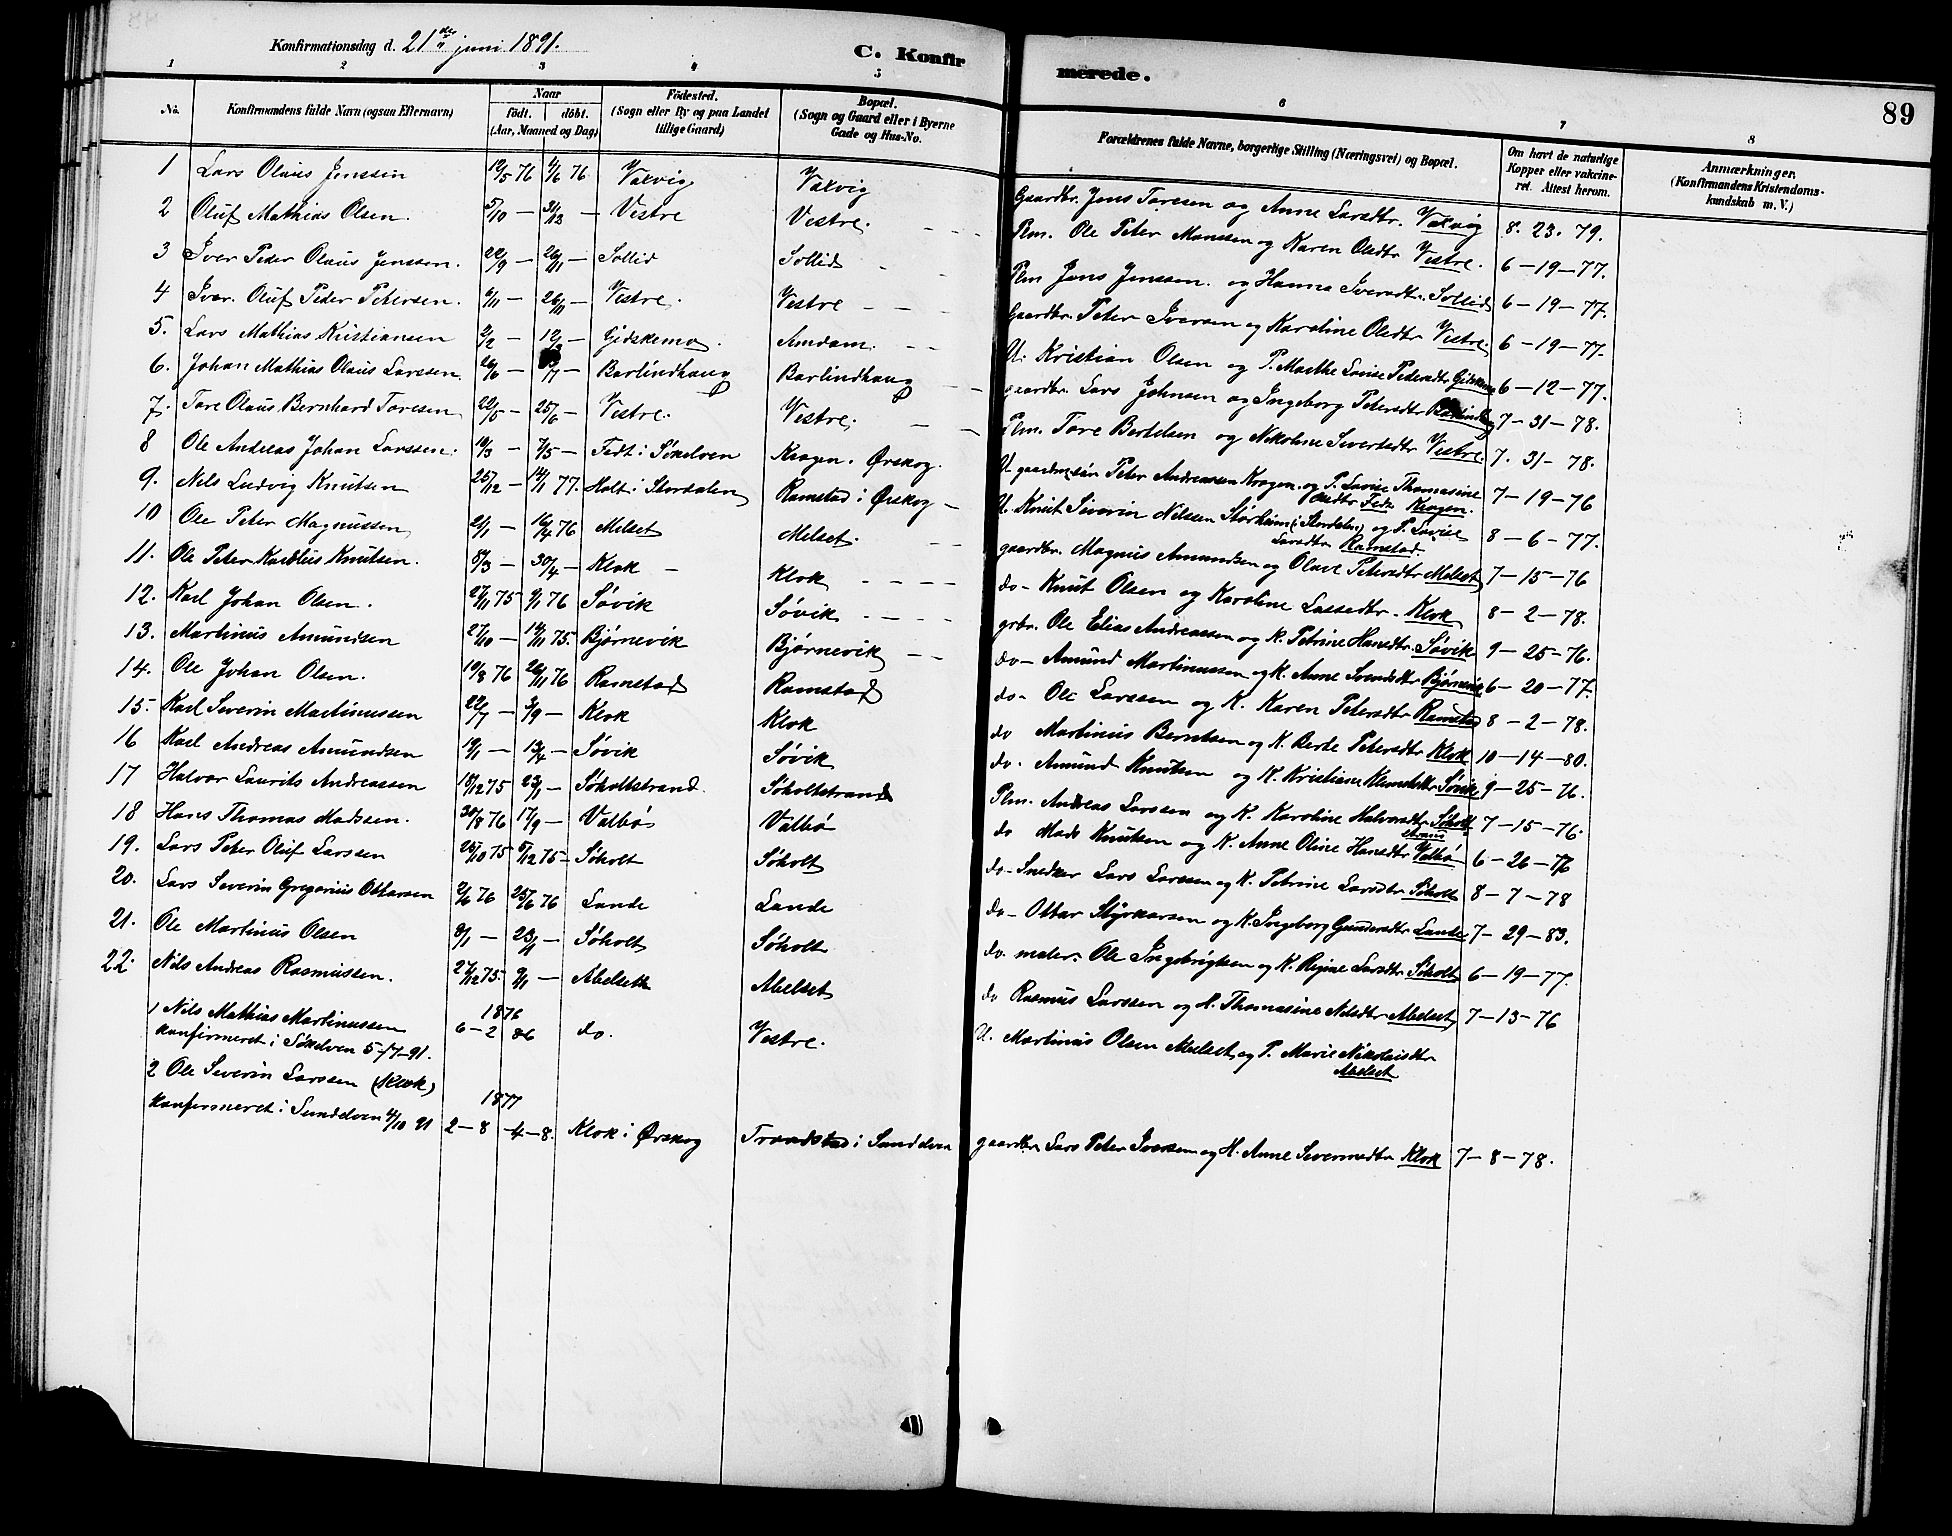 Konfirmationsdag d. 21de juni 1891.
C. Konfirmerede.
89
1 2 3 4 5 6 7 8
No. Konfirmandens fulde Navn (ogsaa Efternavn) Naar födt. döbt. (Aar, Maaned og Dag) Födested. (Sogn eller By og paa Landet tillige Gaard) Bopæl. (Sogn og Gaard eller i Byerne Gade og Hus-No. Forældrenes fulde Navne, borgerlige Stilling (Næringsvei) og Bopæl. Om havt de naturlige Kopper eller vakcineret. Attest herom. Anmærkninger. (Konfirmandens Kristendomskundskab m. V.)
1 Lars Olaus Jenssen 19/5 76 1/6 76 Valvig Valvig Gaardbr. Jens Toresen og Anne Larsdtr. Valvig 8. 23. 79.
2 Oluf Mathias Olsen. 5/10 — 31/12 — Vestre Vestre. Plm. Ole Peter Monssen og Karen Olsdtr Vestre. 6-19-77.
3 Iver Peder Olaus Jenssen. 22/9 — 26/11 — Sollid Sollid Plm Jens Jenssen og Hanna Iversdtr. Sollid 6-19-77.
4 Iver Oluf Peder Petersen. 6/11 — 26/11 — Vestre. Vestre Gaardbr. Peter Iversen og Karoline Olsdtr Vestre. 6-19-77.
5. Lars Mathias Kristiansen 2/2 — 12/3 — Gidskemo. Amdam. U. Kristian Olsen og P. Marthe Lovise Pedersdtr Gidskemo 6-12-77.
6. Johan Mathias Olaus Larssen. 26/6 — /7 — Barlindhaug Barlindhaug gaardbr. Lars Johnsen og Ingeborg Petersdtr Barlindhg 7-31-78.
7. Tore Olaus Bernhard Toresen 22/5 — 25/6 — Vestre. Vestre. Plm. Tore Bertelsen og Nikoline Sivertsdtr Vestre. 7. 31-78.
8 Ole Andreas Johan Larssen. 19/3 — 7/5 — Fedt i Søkelven Kragen. Ørskog. U. gaardmsøn Peter Andreassen Kragen og P. Lovise Thomasine Olsdtr Fedt Kragen. 7-19-76
9. Nils Ludvig Knutsen 25/12 — 14/1 77. Holt i Stordalen Ramstad i Ørskog U. Knut Severin Nilssen Størheim (i Stordalen) og P. Lovise Larsdtr Ramstad. 8-6-77.
10 Ole Peter Magnussen 2/1 — 16/4 76 Melset Melset. gaardbr. Magnus Amundsen og Olave Petersdtr Melset 7-15-76
11. Ole Peter Karolius Knutsen. 8/3 — 30/4 — Klok — Klok do- Knut Olsen og Karoline Lassedtr. Klok 8-2-78.
12. Karl Johan Olsen. 27/11 75 9/1 76 Søvik Søvik grbr. Ole Elias Andreassen og K. Petrine Hansdtr. Søvik 9-25-76.
13. Martinus Amundsen 27/10 — 14/11 75. Bjørnevik Bjørnevik do- Amund Martinussen og K. Anne Svendsdtr Bjørnevik 6-20-77.
14. Ole Johan Olsen. 19/8 76 26/11 76 Ramstad Ramstad do- Ole Larssen og K. Karen Petersdtr Ramstad 8-2-78.
15. Karl Severin Martinussen 22/7 — 3/9 — Klok Klok do Martinus Berntsen og K. Berte Petersdtr Klok 10-14-80.
16 Karl Andreas Amundsen 19/1 — 13/4 — Søvik Søvik do- Amund Knutsen og K. Kristiane Klemetsdtr Søvik 9-25-76.
17 Halvor Laurits Andreassen 18/12 75 23/1 — Søholtstrand. Søholtstrand Plm. Andreas Larssen og K. Karoline Halvorsdtr Søholt strand 7-15-76.
18 Hans Thomas Madssen. 30/8 76 17/9 — Valbø Valbø do Mads Knutsen og K. Anne Oline Hansdtr Valbø 6-26-76
19. Lars Peter Oluf Larssen 25/10 75 5/12 75- Søholt Søholt do- Snedker Lars Larssen og K. Petrine Larsdtr Søholt 8-7-78
20. Lars Severin Gregorius Ottarsen 2/6 76 25/6 76 Lande Lande do- Ottar Styrkarsen og K. Ingeborg Gundersdtr Lande 7-29-83.
21. Ole Martinus Olsen 8/1 — 23/4 — Søholt Søholt do maler. Ole Ingebrigtsen og K. Regine Larsdtr Søholt 6-19-77.
22. Nils Andreas Rasmussen. 27/12 75. 9/1 — Abelseth Abelset do Rasmus Larssen og K. Thomasine Nilsdtr Abelset 7-13-76
1 Nils Mathias Martinussen 1876 6-2 86 do. Vestre. U. Martinus Olsen Abelset og P. Marie Nikolaisdtr Abelset
konfirmeret i Søkelven 5-7-91.
2 Ole Severin Larssen (Klok) 1877
konfirmeret i Sundelven 4/10 91 2-8 -4-8. Klok i Ørskog Trandstad i Sundelven gaardbr. Lars Peter Iversen og K. Anne Severinsdtr Klok 7-8-78.